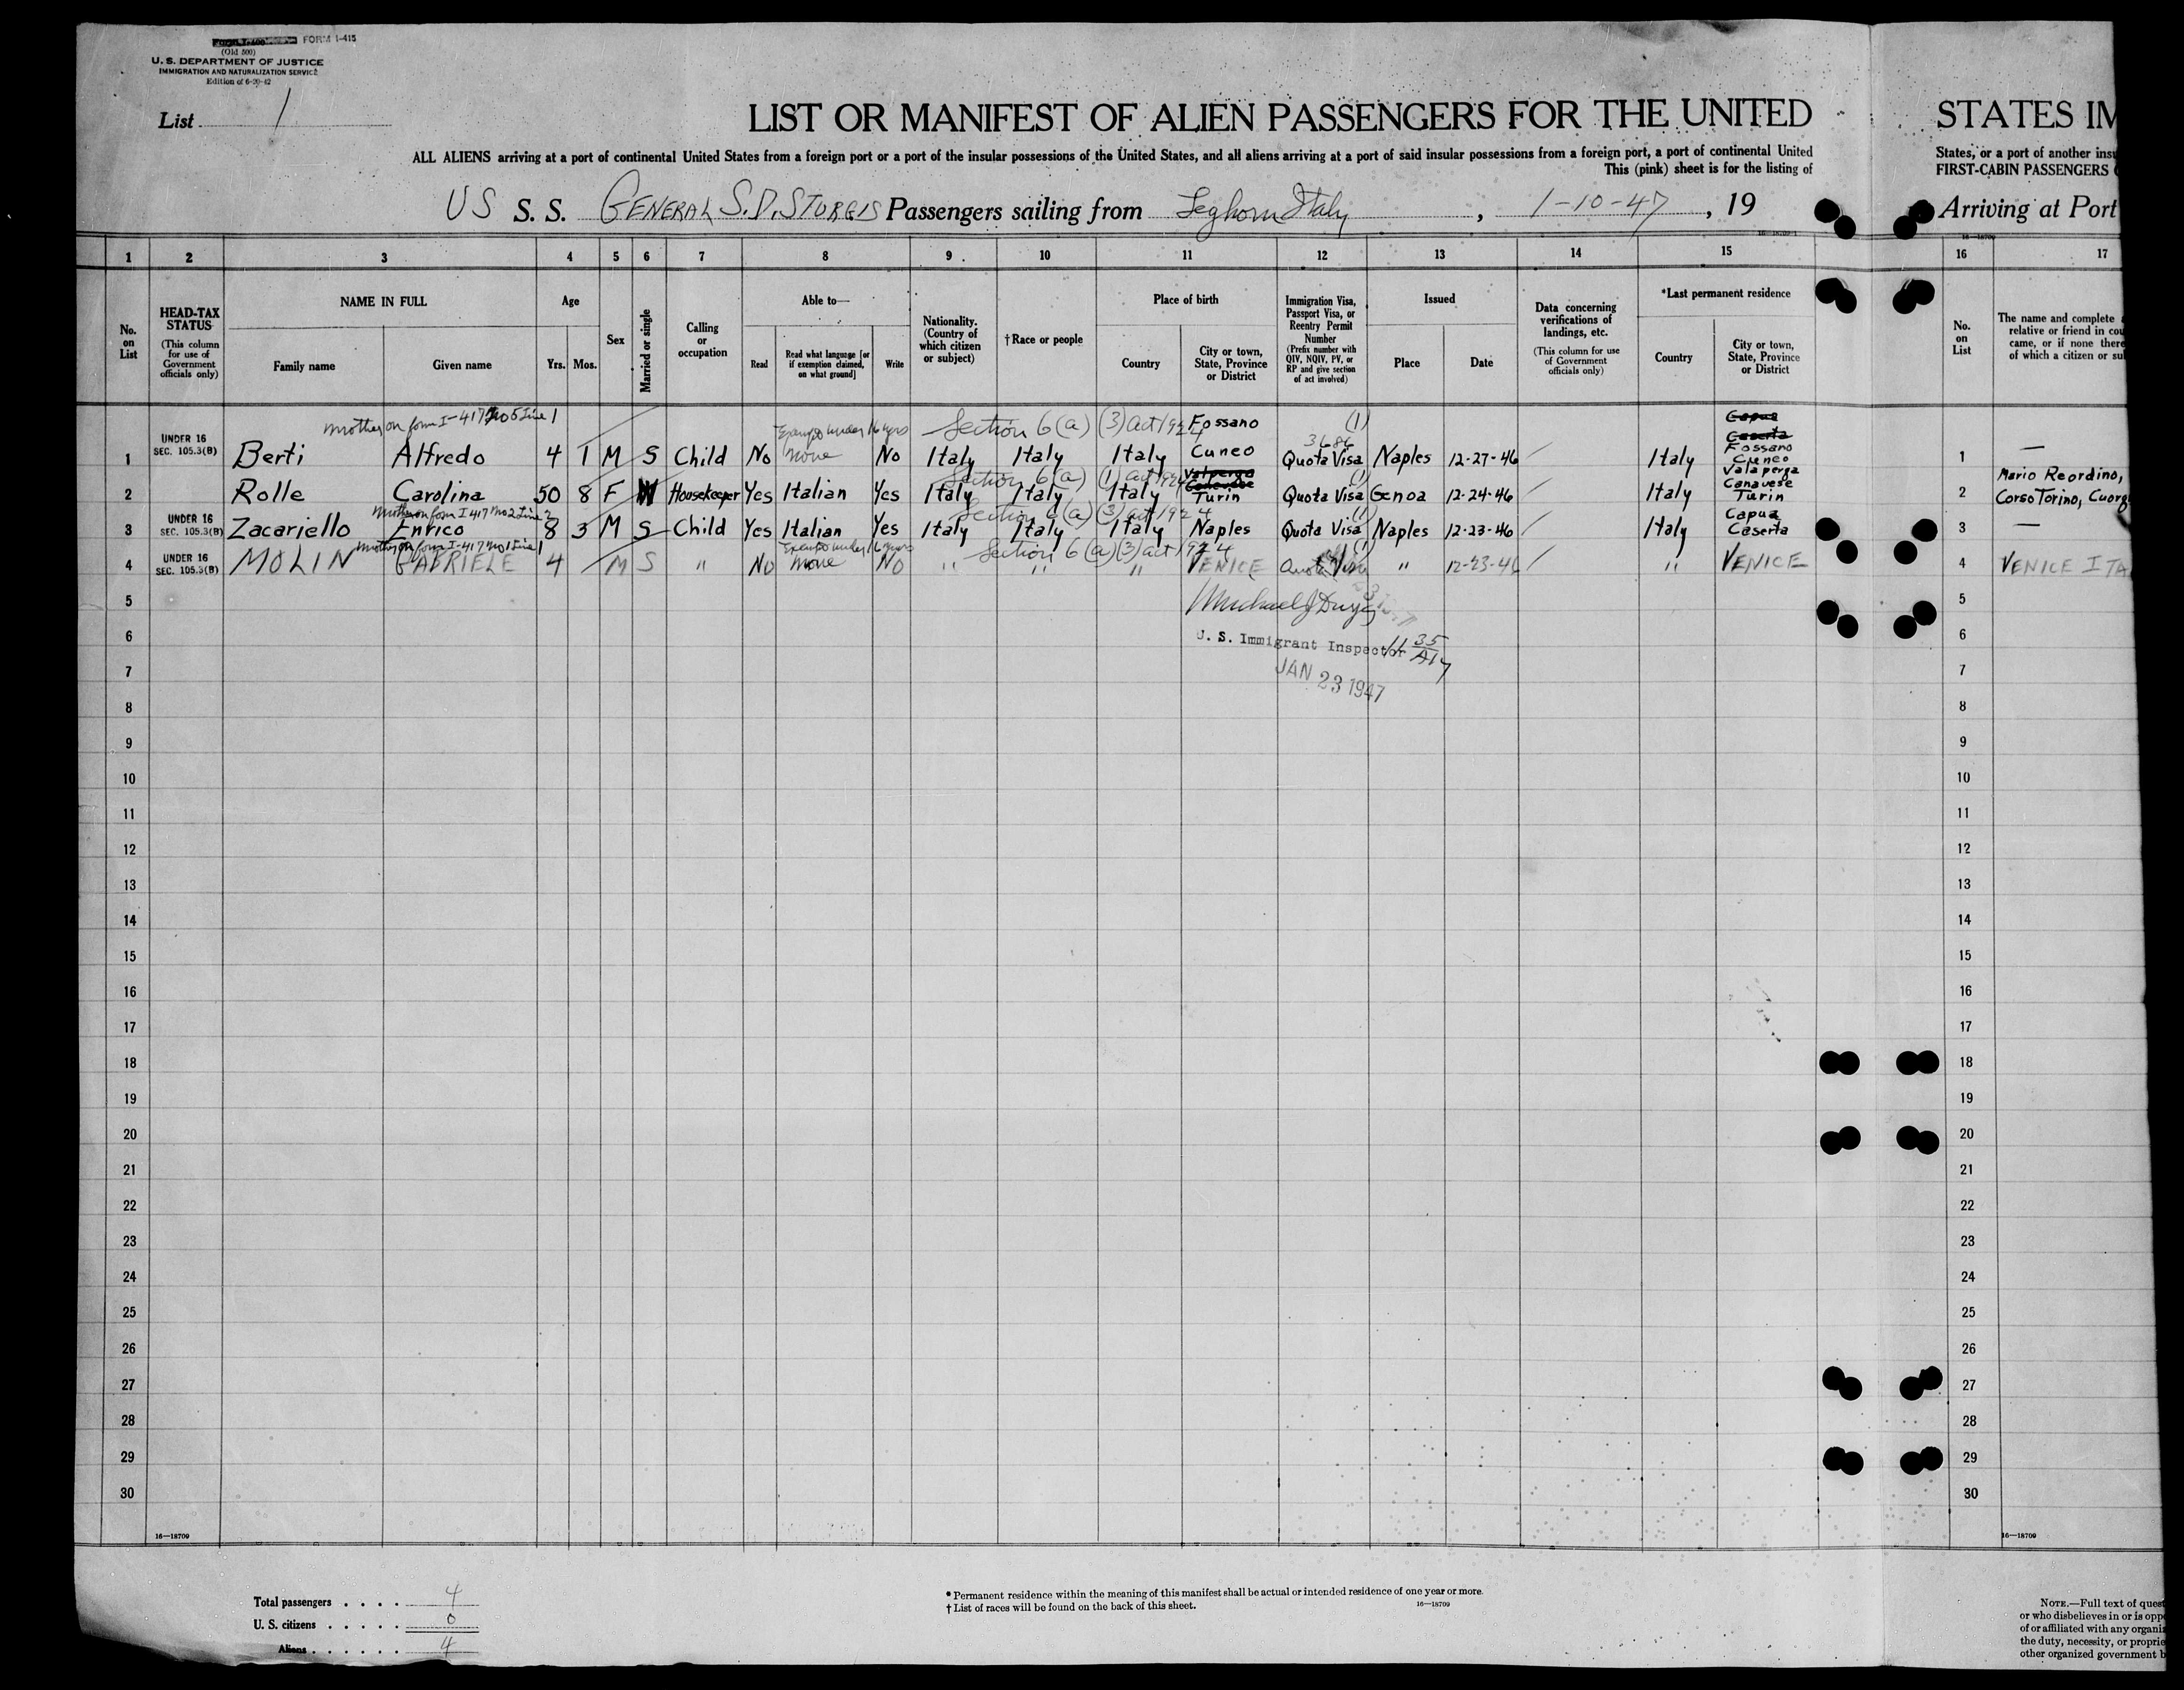 FORM I-415
(Old 500)
U. S. DEPARTMENT OF JUSTICE
IMMIGRATION AND NATURALIZATION SERVICE
Edition of 6-20-42
List 1
LIST OR MANIFEST OF ALIEN PASSENGERS FOR THE UNITED
ALL ALIENS arriving at a port of continental United States from a foreign port or a port of the insular possessions of the United States, and all aliens arriving at a port of said insular possessions from a foreign port, a port of continental United
This (pink) sheet is for the listing of
US S. S. GENERAL S.D. STURGIS Passengers sailing from Leghorn Italy, 1-10-47, 19
STATES IM
States, or a port of another insu
FIRST-CABIN PASSENGERS
Arriving at Port
1 2 3 4 5 6 7 8 9 10 11 12 13 14 15 16 17
No. on List
HEAD-TAX STATUS
(This column for use of Government officials only)
NAME IN FULL
Family name
Given name
Age
Yrs. Mos.
Sex
Married or single
Calling or occupation
Able to—
Read
Read what language [or if exemption claimed, on what ground]
Write
Nationality. (Country of which citizen or subject)
†Race or people
Place of birth
Country
City or town, State, Province or District
Immigration Visa, Passport Visa, or Reentry Permit Number
(Prefix number with QIV, NQIV, PV, or RP and give section of act involved)
Issued
Place
Date
Data concerning verifications of landings, etc.
(This column for use of Government officials only)
*Last permanent residence
Country
City or town, State, Province or District
No. on List
The name and complete
relative or friend in cou
came, or if none there
of which a citizen or su
mother on form I-417 No 5 Line 1
Exempt under 16 yrs
Section 6(a)(3) act 1924
Fossano
(1)
3686
Capua
Caserta
Fossano
1 UNDER 16 SEC. 105.3(B) Berti Alfredo 4 1 M S Child No None No Italy Italy Italy Cuneo Quota Visa Naples 12-27-46 Italy Cuneo 1 —
Section 6(a)(1) act 1924
Valperga
Canavese
(1)
Valaperga
Canavese
Mario Reordino,
2 Rolle Carolina 50 8 F W Housekeeper Yes Italian Yes Italy Italy Italy Turin Quota Visa Genoa 12-24-46 Italy Turin 2 Corso Torino, Cuorg
Mother on form I 417 No 2 Line 2
Section 6(a)(3) act 1924
(1)
Capua
3 UNDER 16 SEC. 105.3(B) Zacariello Enrico 8 3 M S Child Yes Italian Yes Italy Italy Italy Naples Quota Visa Naples 12-23-46 Italy Caserta 3 —
Mother on form I-417 No 1 Line 1
Exempt under 16 years
Section 6(a)(3) act 1924
(1)
4 UNDER 16 SEC. 105.3(B) MOLIN GABRIELE 4 M S " No None No " " " VENICE Quota Visa " 12-23-46 " VENICE 4 VENICE ITA
5 5
U. S. Immigrant Inspector
6 6
JAN 23 1947
7 7
8 8
9 9
10 10
11 11
12 12
13 13
14 14
15 15
16 16
17 17
18 18
19 19
20 20
21 21
22 22
23 23
24 24
25 25
26 26
27 27
28 28
29 29
30 30
16—18709
16—18709
Total passengers . . . . 4
U. S. citizens . . . . . 0
Aliens . . . . . . 4
* Permanent residence within the meaning of this manifest shall be actual or intended residence of one year or more.
† List of races will be found on the back of this sheet.
16—18709
NOTE.—Full text of quest
or who disbelieves in or is oppo
of or affiliated with any organiz
the duty, necessity, or proprie
other organized government b